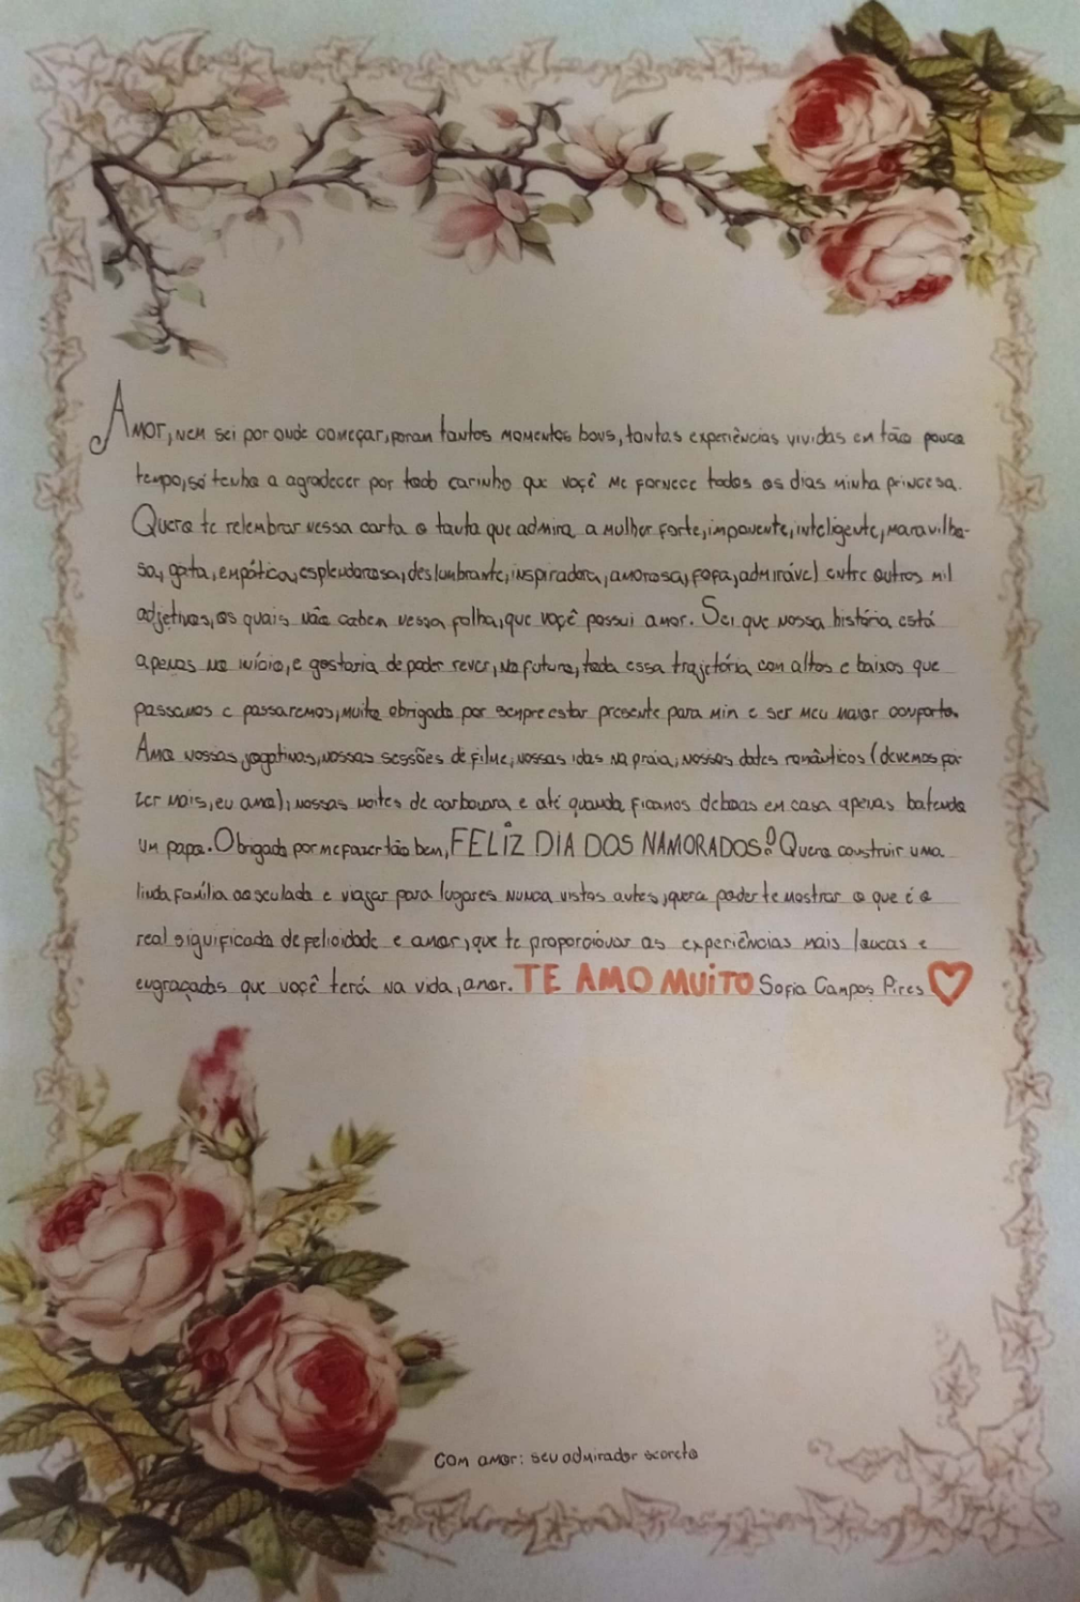 Amor, nem sei por onde começar, foram tantos momentos bons, tantas experiências vividas em tão pouco
tempo, só tenho a agradecer por todo carinho que você me fornece todos os dias minha princesa.
Quero te relembrar nessa carta o tanto que admiro a mulher forte, imponente, inteligente, maravilho-
sa, gata, empática, esplendorosa, deslumbrante, inspiradora, amorosa, fofa, admirável entre outros mil
adjetivos, os quais não cabem nessa folha, que você possui amor. Sei que nossa história está
apenas no início, e gostaria de poder rever, no futuro, toda essa trajetória com altos e baixos que
passamos e passaremos, muito obrigado por sempre estar presente para mim e ser meu maior conforto.
Amo nossas jogatinas, nossas sessões de filme, nossas idas na praia, nossos dates românticos (devemos fa-
zer mais, eu amo), nossas noites de carbonara e até quando ficamos deboas em casa apenas batendo
um papo. Obrigado por me fazer tão bem, FELIZ DIA DOS NAMORADOS! Quero construir uma
linda família ao seu lado e viajar para lugares nunca vistos antes, quero poder te mostrar o que é o
real significado de felicidade e amor, que te proporcionar as experiências mais loucas e
engraçadas que você terá na vida, amor. TE AMO MUITO Sofia Campos Pires
Com amor: seu admirador secreto